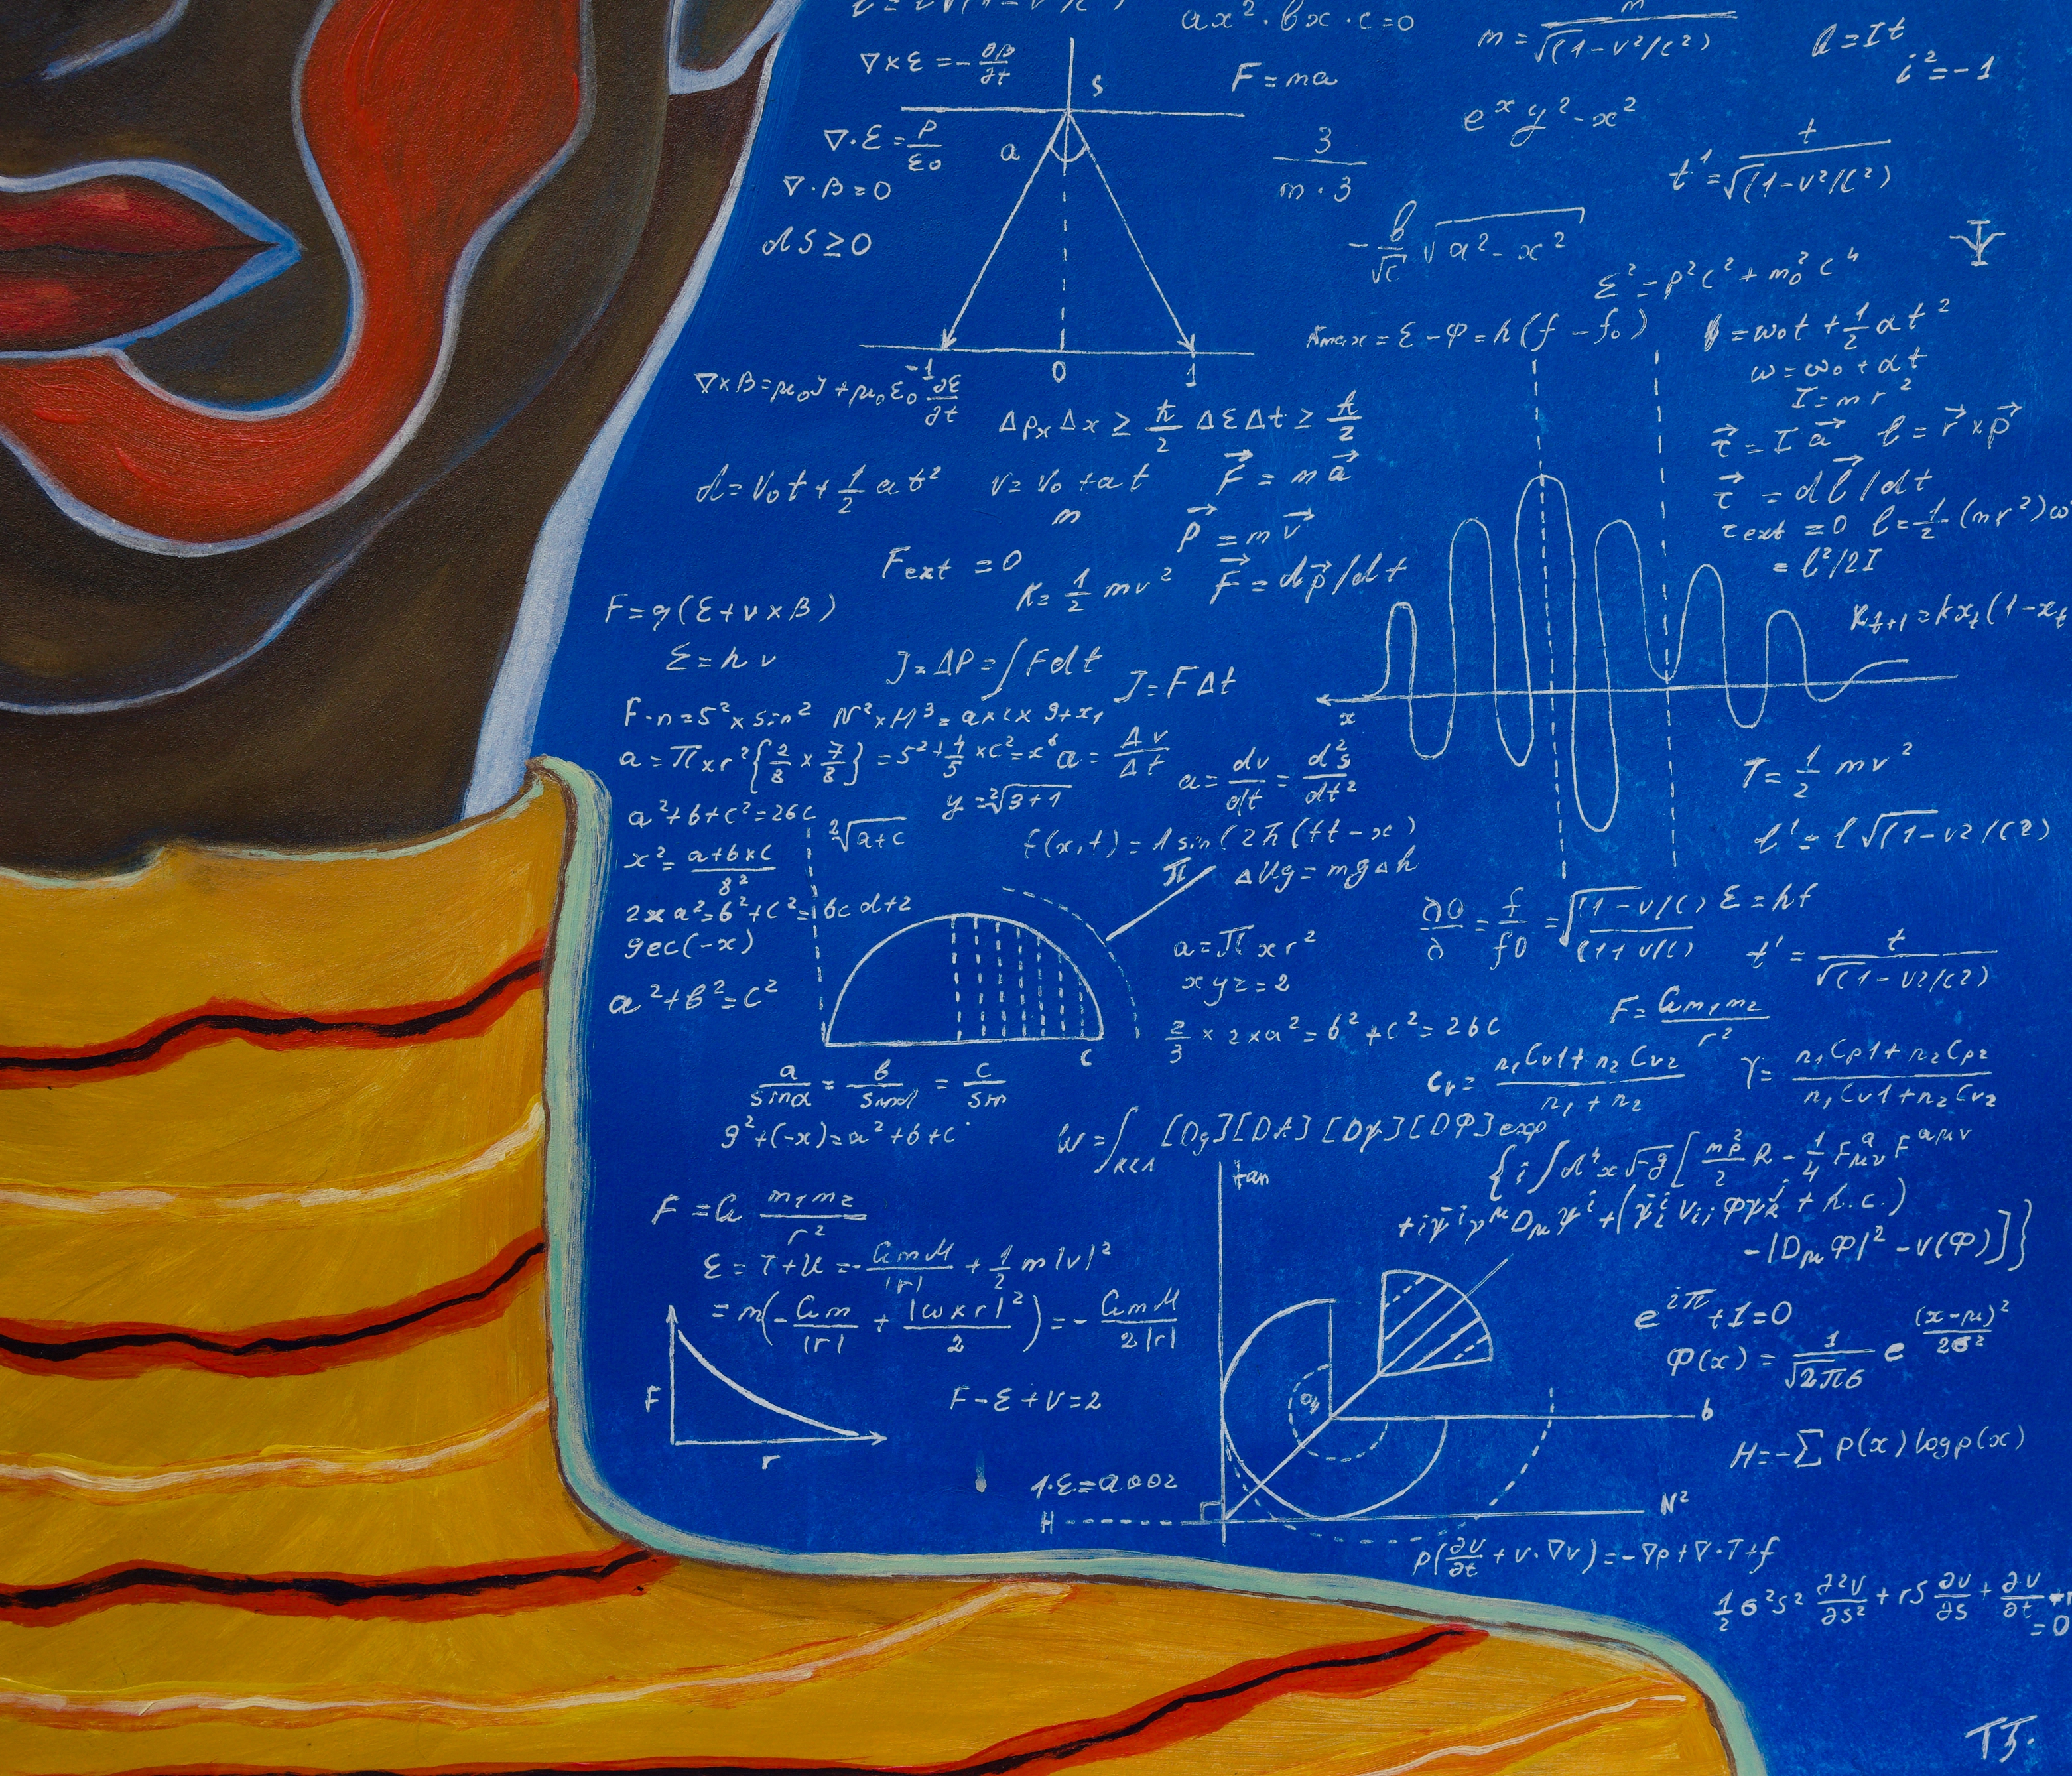 ax²·bx·c=0
m = m / √(1-v²/c²)
Q = It
i² = -1
∇×ε = -∂B/∂t
S
F = ma
e^x y²-x²
∇·ε = ρ/ε₀
a
3 / m·3
t¹ = t / √(1-v²/c²)
∇·B = 0
dS ≥ 0
-b/√c √a²-x²
ε² = p²c² + m₀²c⁴
Kmax = ε - φ = h(f - f₀)
= ω₀t + 1/2 αt²
ω = ω₀ + αt
I = mr²
-1 0 1
∇×B = μ₀J + μ₀ε₀ ∂ε/∂t
Δpₓ Δx ≥ ħ/2 ΔεΔt ≥ ħ/2
τ⃗ = I a⃗ l = r⃗ × p⃗
d = v₀t + 1/2 at² v = v₀ + at F⃗ = m a⃗
τ⃗ = d l⃗/dt
m
p⃗ = m v⃗
τext = 0 l = 1/2 (mr²)ω
= l²/2I
Fext = 0
K = 1/2 mv² F⃗ = dp⃗/dt
F = q(ε + v×B)
x t+1 = kx t (1-x t
ε = h v
J = ΔP = ∫Fdt J = FΔt
F·n = 5² × sin² N² × H³ = a×c× 9+x₁
x
a = π×r² {2/8 × 7/8} = 5² + 4/5 × c² = x⁶ a = Δv/Δt
a = dv/dt = d²s/dt²
T = 1/2 mv²
y = ²√3+1
a²+b+c² = 26c
²√a+c
f(x,t) = A sin(2π(ft-x)
l' = l√(1-v2/c2)
x² = a+b×c / 8²
π
ΔUg = mgΔh
2×a² = b²+c² = bcd+2
f/f0 = √(1-v/c) / (1+v/c) ε = hf
gec(-x)
a = π×r²
t' = t / √(1-v2/c2)
xyz = 2
a²+b² = c²
F = Gm₁m₂ / r²
2/3 × 2×a² = b² + c² = 2bc
c
Cv = n₁Cv1 + n₂Cv2 / n₁ + n₂
γ = n₁Cp1 + n₂Cp2 / n₁Cv1 + n₂Cv2
a/sinα = b/sinα = c/sin
9²+(-x) = a²+b+c
W = ∫k<Λ [Dg][DA][Dψ][DΦ]exp
{i∫d⁴x√-g [mp²/2 R - 1/4 Fᵃμν Fᵃμν
tan
+iψ̄ⁱγ^μ Dμψⁱ + (ψ̄ᴸⁱ Vij Φψᴿʲ + h.c.)
-|DμΦ|² - V(Φ)]}
F = G m₁m₂ / r²
ε = T+U = -GmM/|r| + 1/2 m|v|²
= m(-Gm/|r| + |ω×r|²/2) = -GmM/2|r|
e^2π + 1 = 0
Φ(x) = 1/√2πσ e (x-μ)²/2σ²
F
F-ε+V=2
b
r
H = -Σ p(x) log p(x)
1·ε = a002
H
N²
ρ(∂v/∂t + v·∇v) = -∇p + ∇·T + f
1/2 σ²s² ∂²v/∂s² + rS ∂v/∂s + ∂v/∂t
= 0